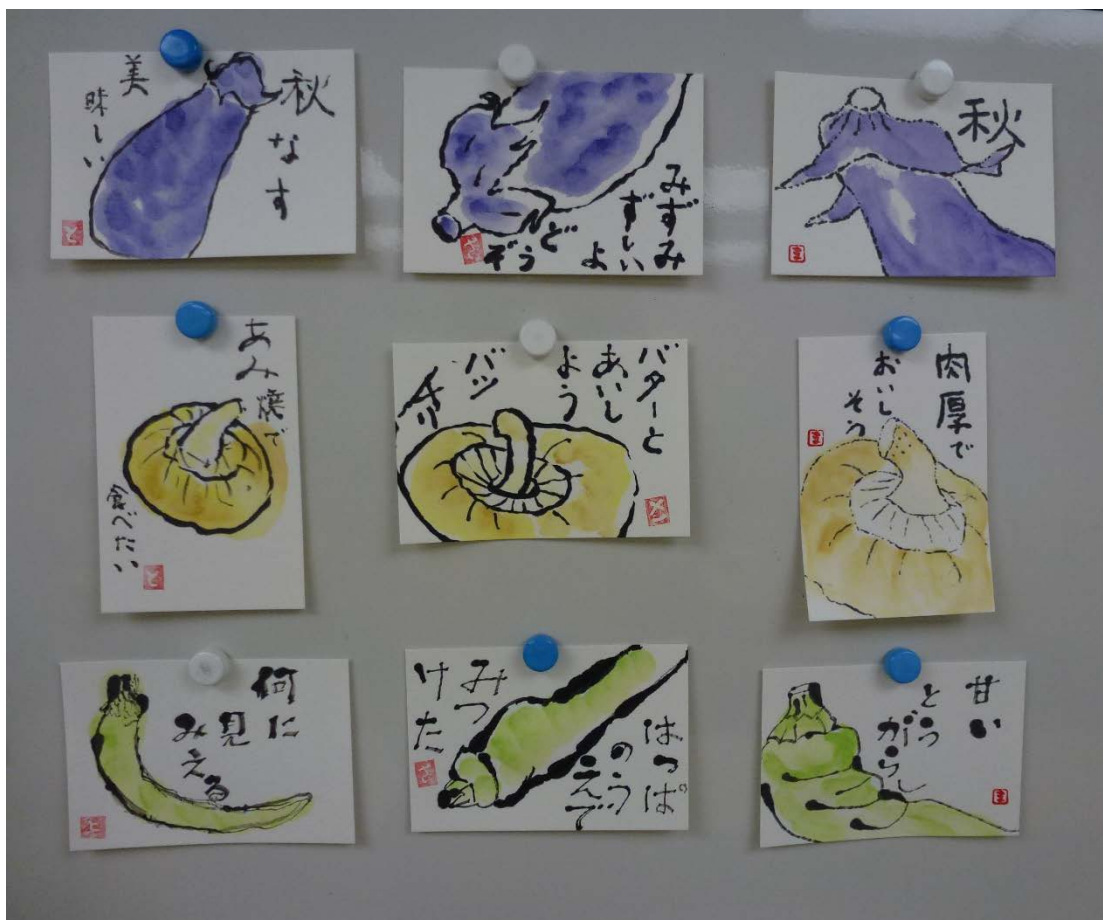 秋なす
美
味しい
と
みずみ
ずしい
よ
どうぞ
や
秋
ま
あみ焼で
食べたい
と
バターと
あいし
よう
バッ
チリ
肉厚で
おいし
そう
ま
何に
見
みえる
と
はっぱ
のう
えで
みつ
けた
や
甘い
とう
がらし
ま